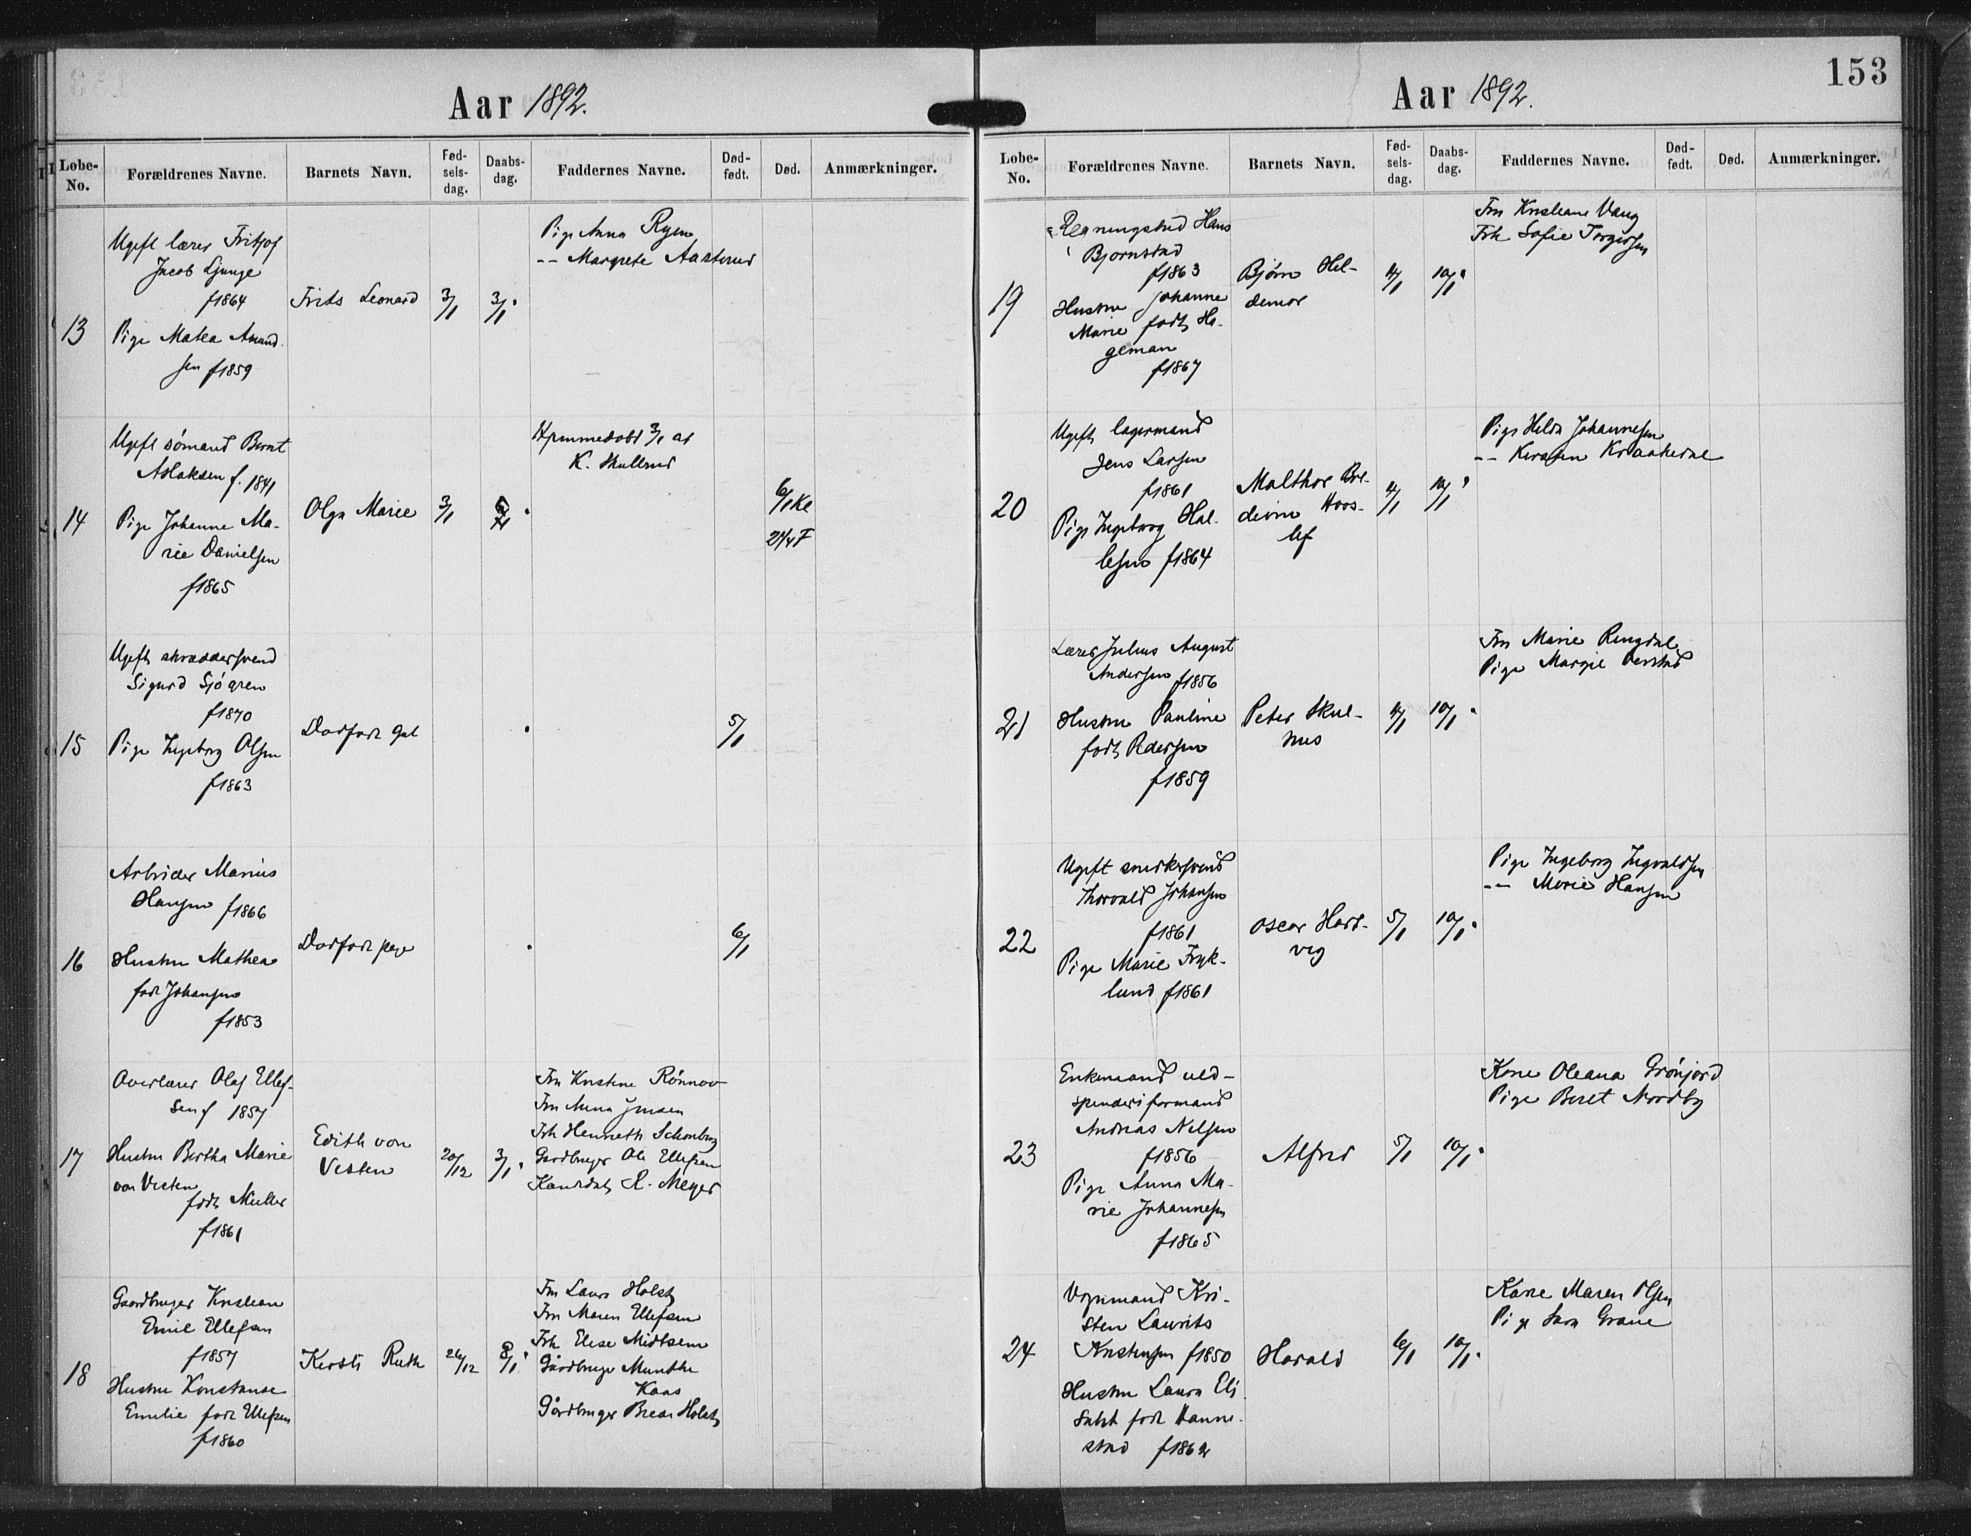 Aar 1892.
Løbe-No. Forældrenes Navne. Barnets Navn. Fød-sels-dag. Daabs-dag. Faddernes Navne. Død-født. Død. Anmærkninger.
13
Ugift lærer Fritjof
Jacob Ljunge
f1864
Pige Matea Amund
sen f1859
Frits Leonard
3/1
3/1
Pige Anna Ryen
-- Margrete Aasterud
14
Ugift sømand Bernt
Aslaksen f. 1841
Pige Johanne Ma-
rie Danielsen
f1865
Olga Marie
3/1
Hjemmedøbt 3/1 af
K. Skullrud
6/1 Kl
15
Ugift skræddersvend
Sigurd Sjögren
f1870
Pige Ingeborg Olsen
f1863
Dødfødt gut
5/1
16
Arbeider Marius
Hansen f1866
Hustru Mathea
født Johansen
f1853
Dødfødt pige
6/1
17
Overlærer Olaf Ellef-
sen f 1857
Hustru Bertha Marie
von Vesten
født Müller
f1861
Edith von
Vesten
20/12
3/1
Fru Kristine Rönnov
Fru Anna Jensen
Frk Henriette Schonberg
Gaardbruger Ole Ellefsen
Kandidat R. Meyer
18
Gaardbruger Kristian
Emil Ellefsen
f1857
Hustru Konstanse
Emilie født Ellefsen
f1860
Kirsti Ruth
26/12
8/1
Fru Laura Holst
Fru Maren Ellefsen
Frk Elise Midtsem
Gårdbruger Munthe
Kaas
Gårdbruger Brede Holst
153
Aar 1892.
Løbe-No. Forældrenes Navne. Barnets Navn. Fød-sels-dag. Daabs-dag. Faddernes Navne. Død-født. Død. Anmærkninger.
19
Hans
Bjørnstad
f1863
Hustru Johanne
Marie født Ha-
geman
f1867
Bjørn Hel-
demar
4/1
10/1
Fru Kristiane Vang
Frk Sofie Torgersen
20
Ugift lagermand
Jens Larsen
f1861
Pige Ingeborg Hal-
lesen f1864
Malthor Bol-
divin
4/1
10/1
Pige Helda Johannesen
--
21
Lærer Julius August
Andersen f1856
Hustru Pauline
født Pedersen
f1859
Peter Skul-
nes
4/1
10/1
Fru Marie Ringdal
Pige Margit
22
Ugift snekkersvend
Thorvald Johansen
f1861
Pige Marie Fryk-
lund f1861
Oscar Hart-
vig
5/1
10/1
Pige Ingeborg Ingvaldsen
-- Marie Hansen
23
Enkemand uld-
spinderiformand
Andreas Nelsen
f1856
Pige Anna Ma-
rie Johannesen
f1865
Alfred
5/1
10/1
Kone Oleana Grönjord
Pige Beret Nordby
24
Vognmand Kri-
sten Laurits
Kristensen f1850
Hustru Laura Eli-
sabet født Hanne-
stad f1862
Harald
6/1
10/1
Kone Maren Olsen
Pige Sara Grane